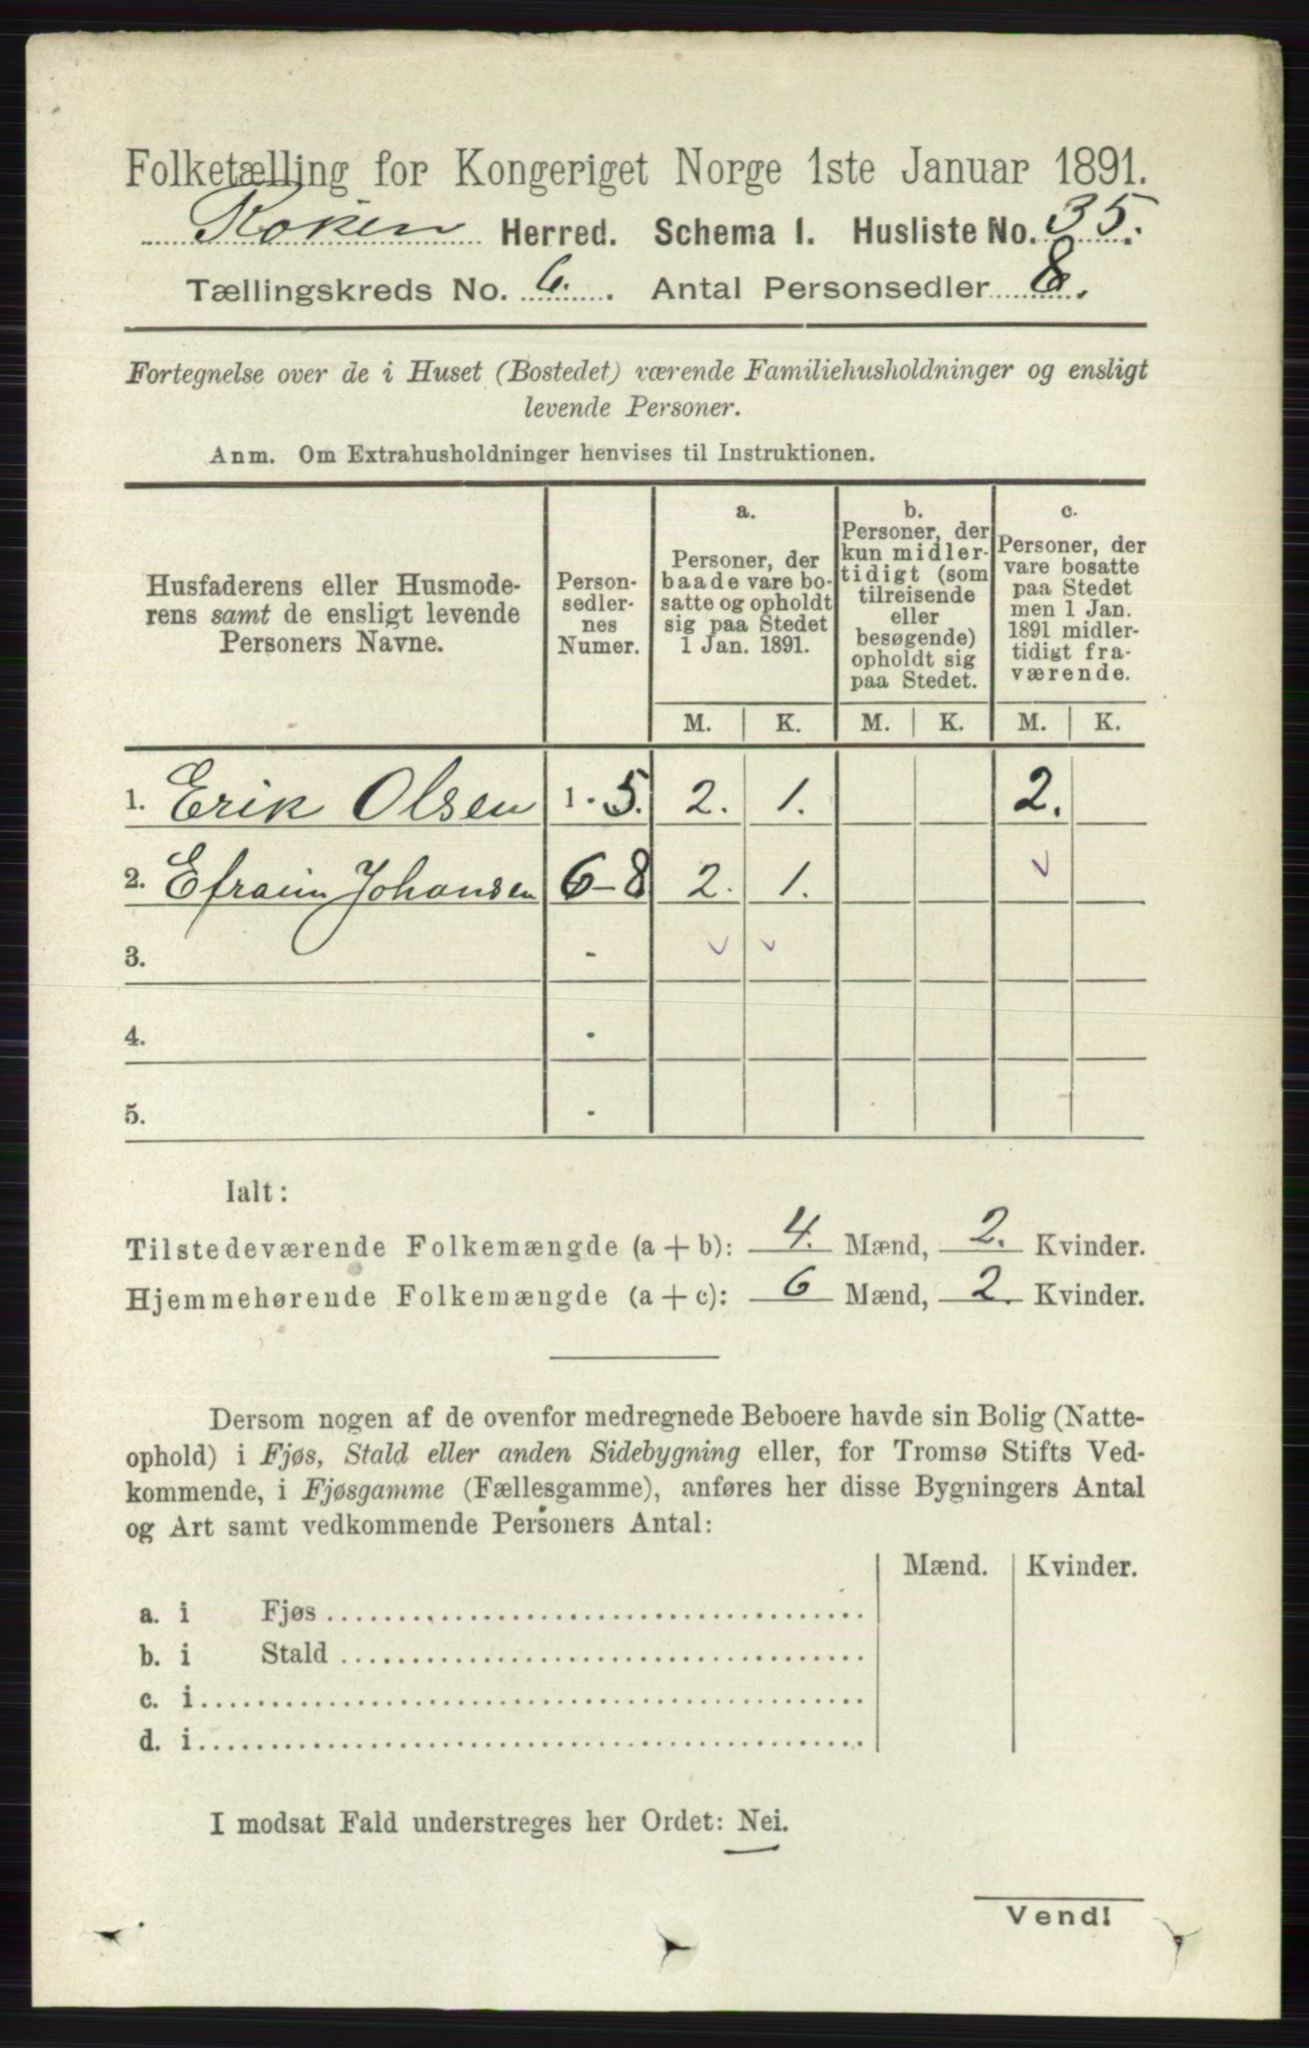 Folketælling for Kongeriget Norge 1ste Januar 1891.
Röken Herred. Schema I. Husliste No. 35.
Tællingskreds No. 6. Antal Personsedler 8.
Fortegnelse over de i Huset (Bostedet) værende Familiehusholdninger og ensligt
levende Personer.
Anm. Om Extrahusholdninger henvises til Instruktionen.
Husfaderens eller Husmode-
rens samt de ensligt levende
Personers Navne.
Person-
sedler-
nes
Numer.
a.
Personer, der
baade vare bo-
satte og opholdt
sig paa Stedet
1 Jan. 1891.
b.
Personer, der
kun midler-
tidigt (som
tilreisende
eller
besøgende)
opholdt sig
paa Stedet.
c.
Personer, der
vare bosatte
paa Stedet
men 1 Jan.
1891 midler-
tidigt fra-
værende.
M. K. M. K. M. K.
1. Erik Olsen 1 - 5. 2. 1. 2.
2. Efraim Johansen 6-8 2. 1.
3. -
4. -
5. -
Ialt:
Tilstedeværende Folkemængde (a + b): 4. Mænd, 2. Kvinder.
Hjemmehørende Folkemængde (a + c): 6 Mænd, 2. Kvinder.
Dersom nogen af de ovenfor medregnede Beboere havde sin Bolig (Natte-
ophold) i Fjøs, Stald eller anden Sidebygning eller, for Tromsø Stifts Ved-
kommende, i Fjøsgamme (Fællesgamme), anføres her disse Bygningers Antal
og Art samt vedkommende Personers Antal:
Mænd. Kvinder.
a. i Fjøs
b. i Stald
c. i
d. i
I modsat Fald understreges her Ordet: Nei.
Vend!